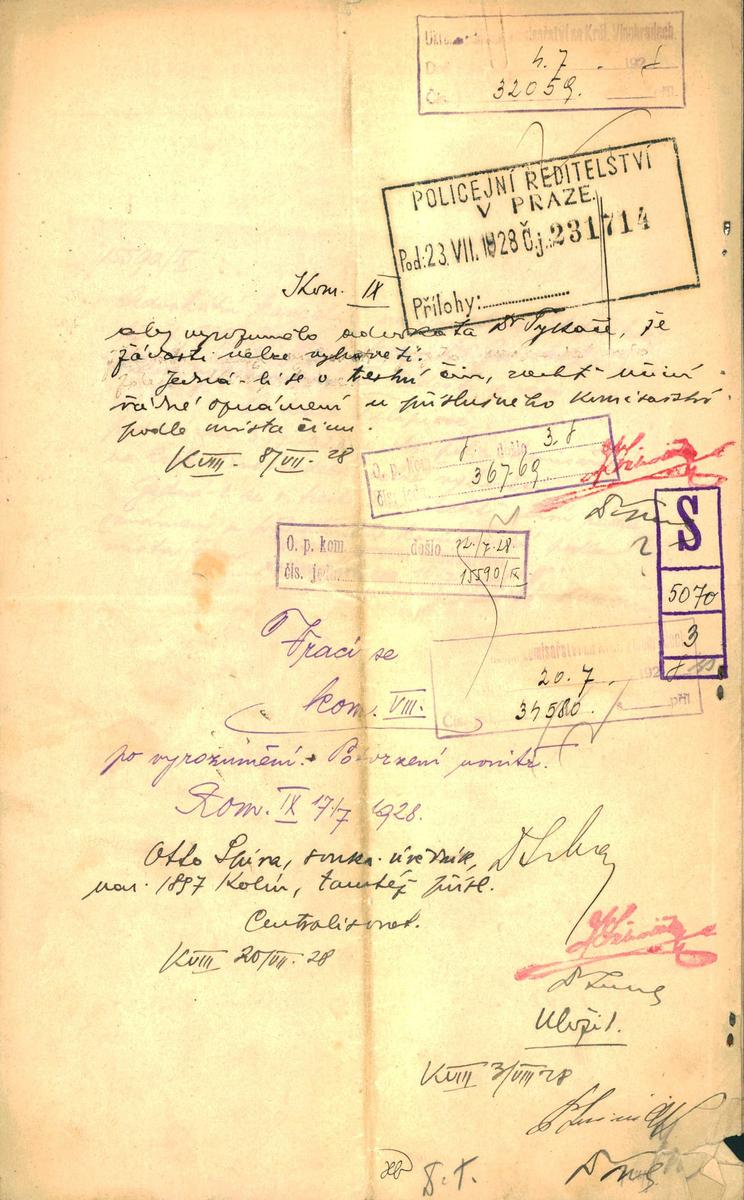 komisařství na Král. Vinohradech.
4.7. 192
32059.
POLICEJNÍ ŘEDITELSTVÍ
V PRAZE
Pod: 23. VII. 1928 Č.j.: 231714
Přílohy:
Kom. IX
aby vyrozumělo advokáta Dr Tykače, že
žádosti nelze vyhověti.
Jedná-li se o trestní čin, nechť učiní
řádné oznámení u příslušného komisařství
podle místa činu.
KVIII. 8/VII. 28
O. p. kom. došlo 3. 8
čís. jed. 36769
O. p. kom. došlo 12./7.28
čís. jedn. 15590/IX
S
5070
3
8
Vrací se
kom. VIII.
20. 7. 192
34580. příl
po vyrozumění. Potvrzení uvnitř.
Kom. IX 17/7 1928.
Otto soukr. úředník,
nar. 1897 Kolín, tamtéž přísl.
KVIII 20/VII. 28
Uložil.
KVIII 3/VIII 28